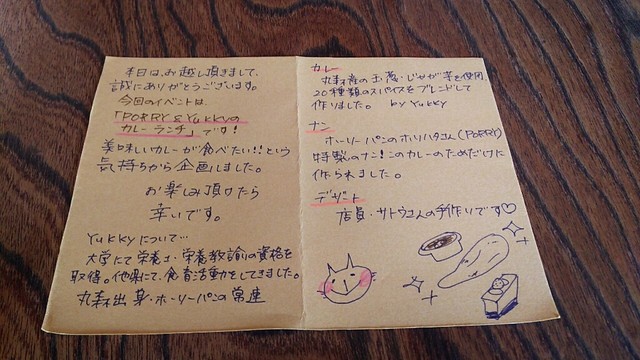 本日は、お越し頂きまして、
誠にありがとうございます。
今回のイベントは、
「PORRY & YUKKYの
カレーランチ」です!
美味しいカレーが食べたい!!という
気持ちから企画しました。
お楽しみ頂けたら
幸いです。
YUKKYについて…
大学にて栄養士・栄養教諭の資格を
取得。他県にて、食育活動をしてきました。
丸森出身・ホーリーパンの常連
カレー
丸森産の玉葱・じゃが芋を使用
20種類のスパイスをブレンドして
作りました。 by YUKKY
ナン
ホーリーパンのホリハタさん(PORRY)
特製のナン!このカレーのためだけに
作られました。
デザート
店員・サトウさんの手作りです♡